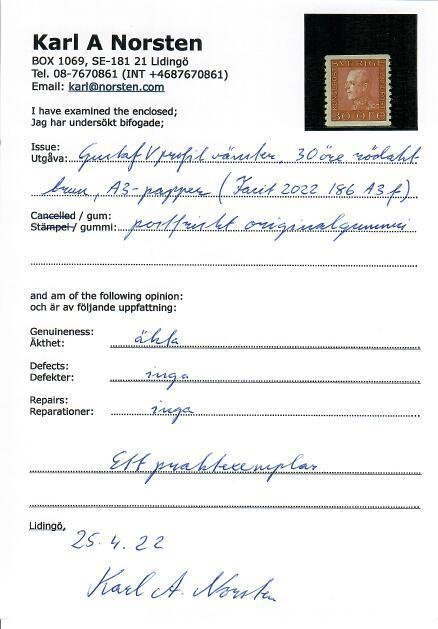 Karl A Norsten
BOX 1069, SE-181 21 Lidingö
Tel. 08-7670861 (INT +4687670861)
Email: karl@norsten.com
SVERIGE
30 ÖRE
I have examined the enclosed;
Jag har undersökt bifogade;
Issue:
Utgåva: Gustaf V profil vänster, 30 öre rödakt
brun, A3-papper (Facit 2022 186 A3 f)
Cancelled / gum:
Stämpel / gummi: postfriskt originalgummi
and am of the following opinion:
och är av följande uppfattning:
Genuineness:
Äkthet: äkta
Defects:
Defekter: inga
Repairs:
Reparationer: inga
Ett praktexemplar
Lidingö,
25.4.22
Karl A. Norsten